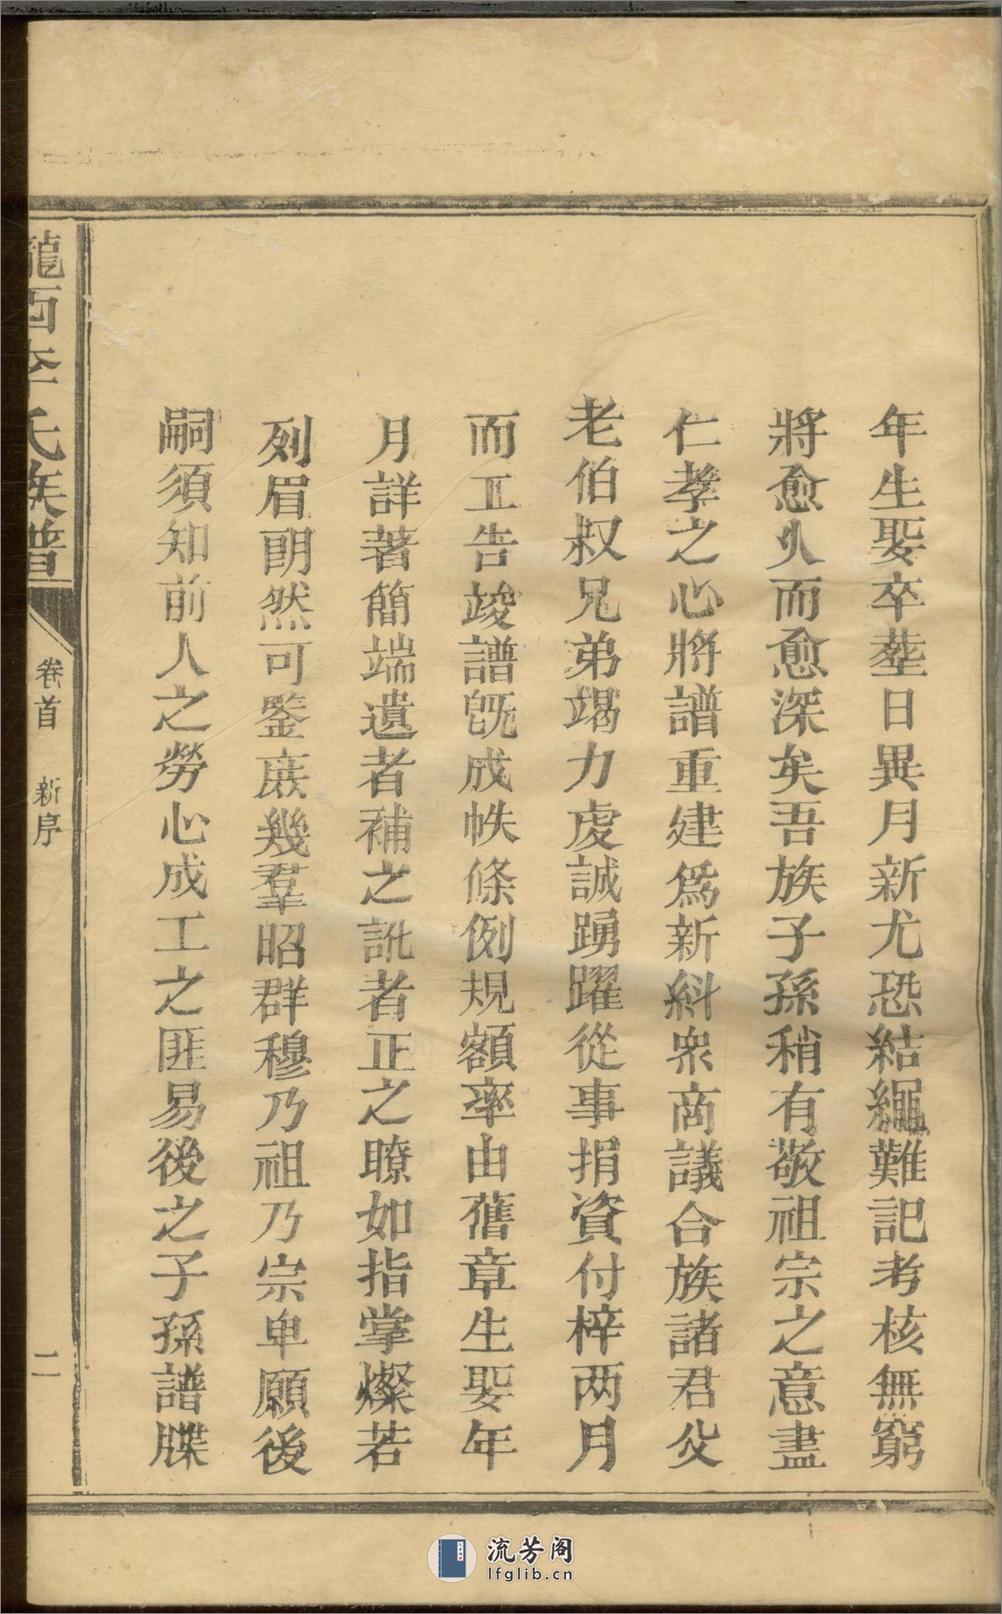 年生娶卒塟日異月新尤恐結繩難記考核無窮
將愈乆而愈深矣吾族子孫稍有敬祖宗之意盡
仁孝之心將譜重建爲新糾衆商議合族諸君父
老伯叔兄弟竭力虔誠踴躍從事捐資付梓两月
而工告竣譜旣成帙條例規額率由舊章生娶年
月詳著簡端遺者補之訛者正之瞭如指掌燦若
列眉朗然可鑒庶幾羣昭群穆乃祖乃宗卑願後
嗣須知前人之勞心成工之匪易後之子孫譜牒
隴西李氏族譜
卷首 新序
二
流芳阁
lfglib.cn